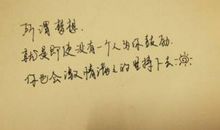 所谓梦想，
就是即使没有一个人为你鼓励，
你也会激情满满的坚持下去……